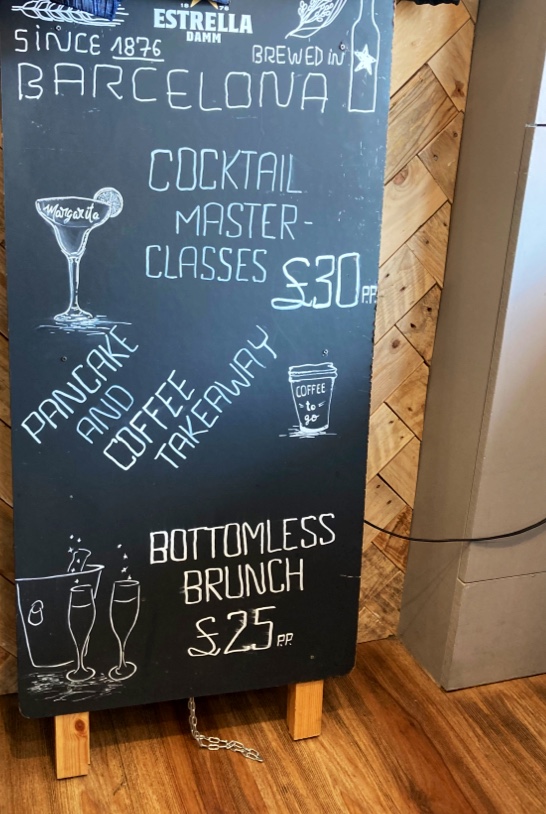 ESTRELLA
DAMM
SINCE 1876
BREWED IN
BARCELONA
COCKTAIL
MASTER-
CLASSES
£30 P.P.
Margarita
PANCAKE
AND
COFFEE
TAKEAWAY
COFFEE
to
go
BOTTOMLESS
BRUNCH
£25 P.P.